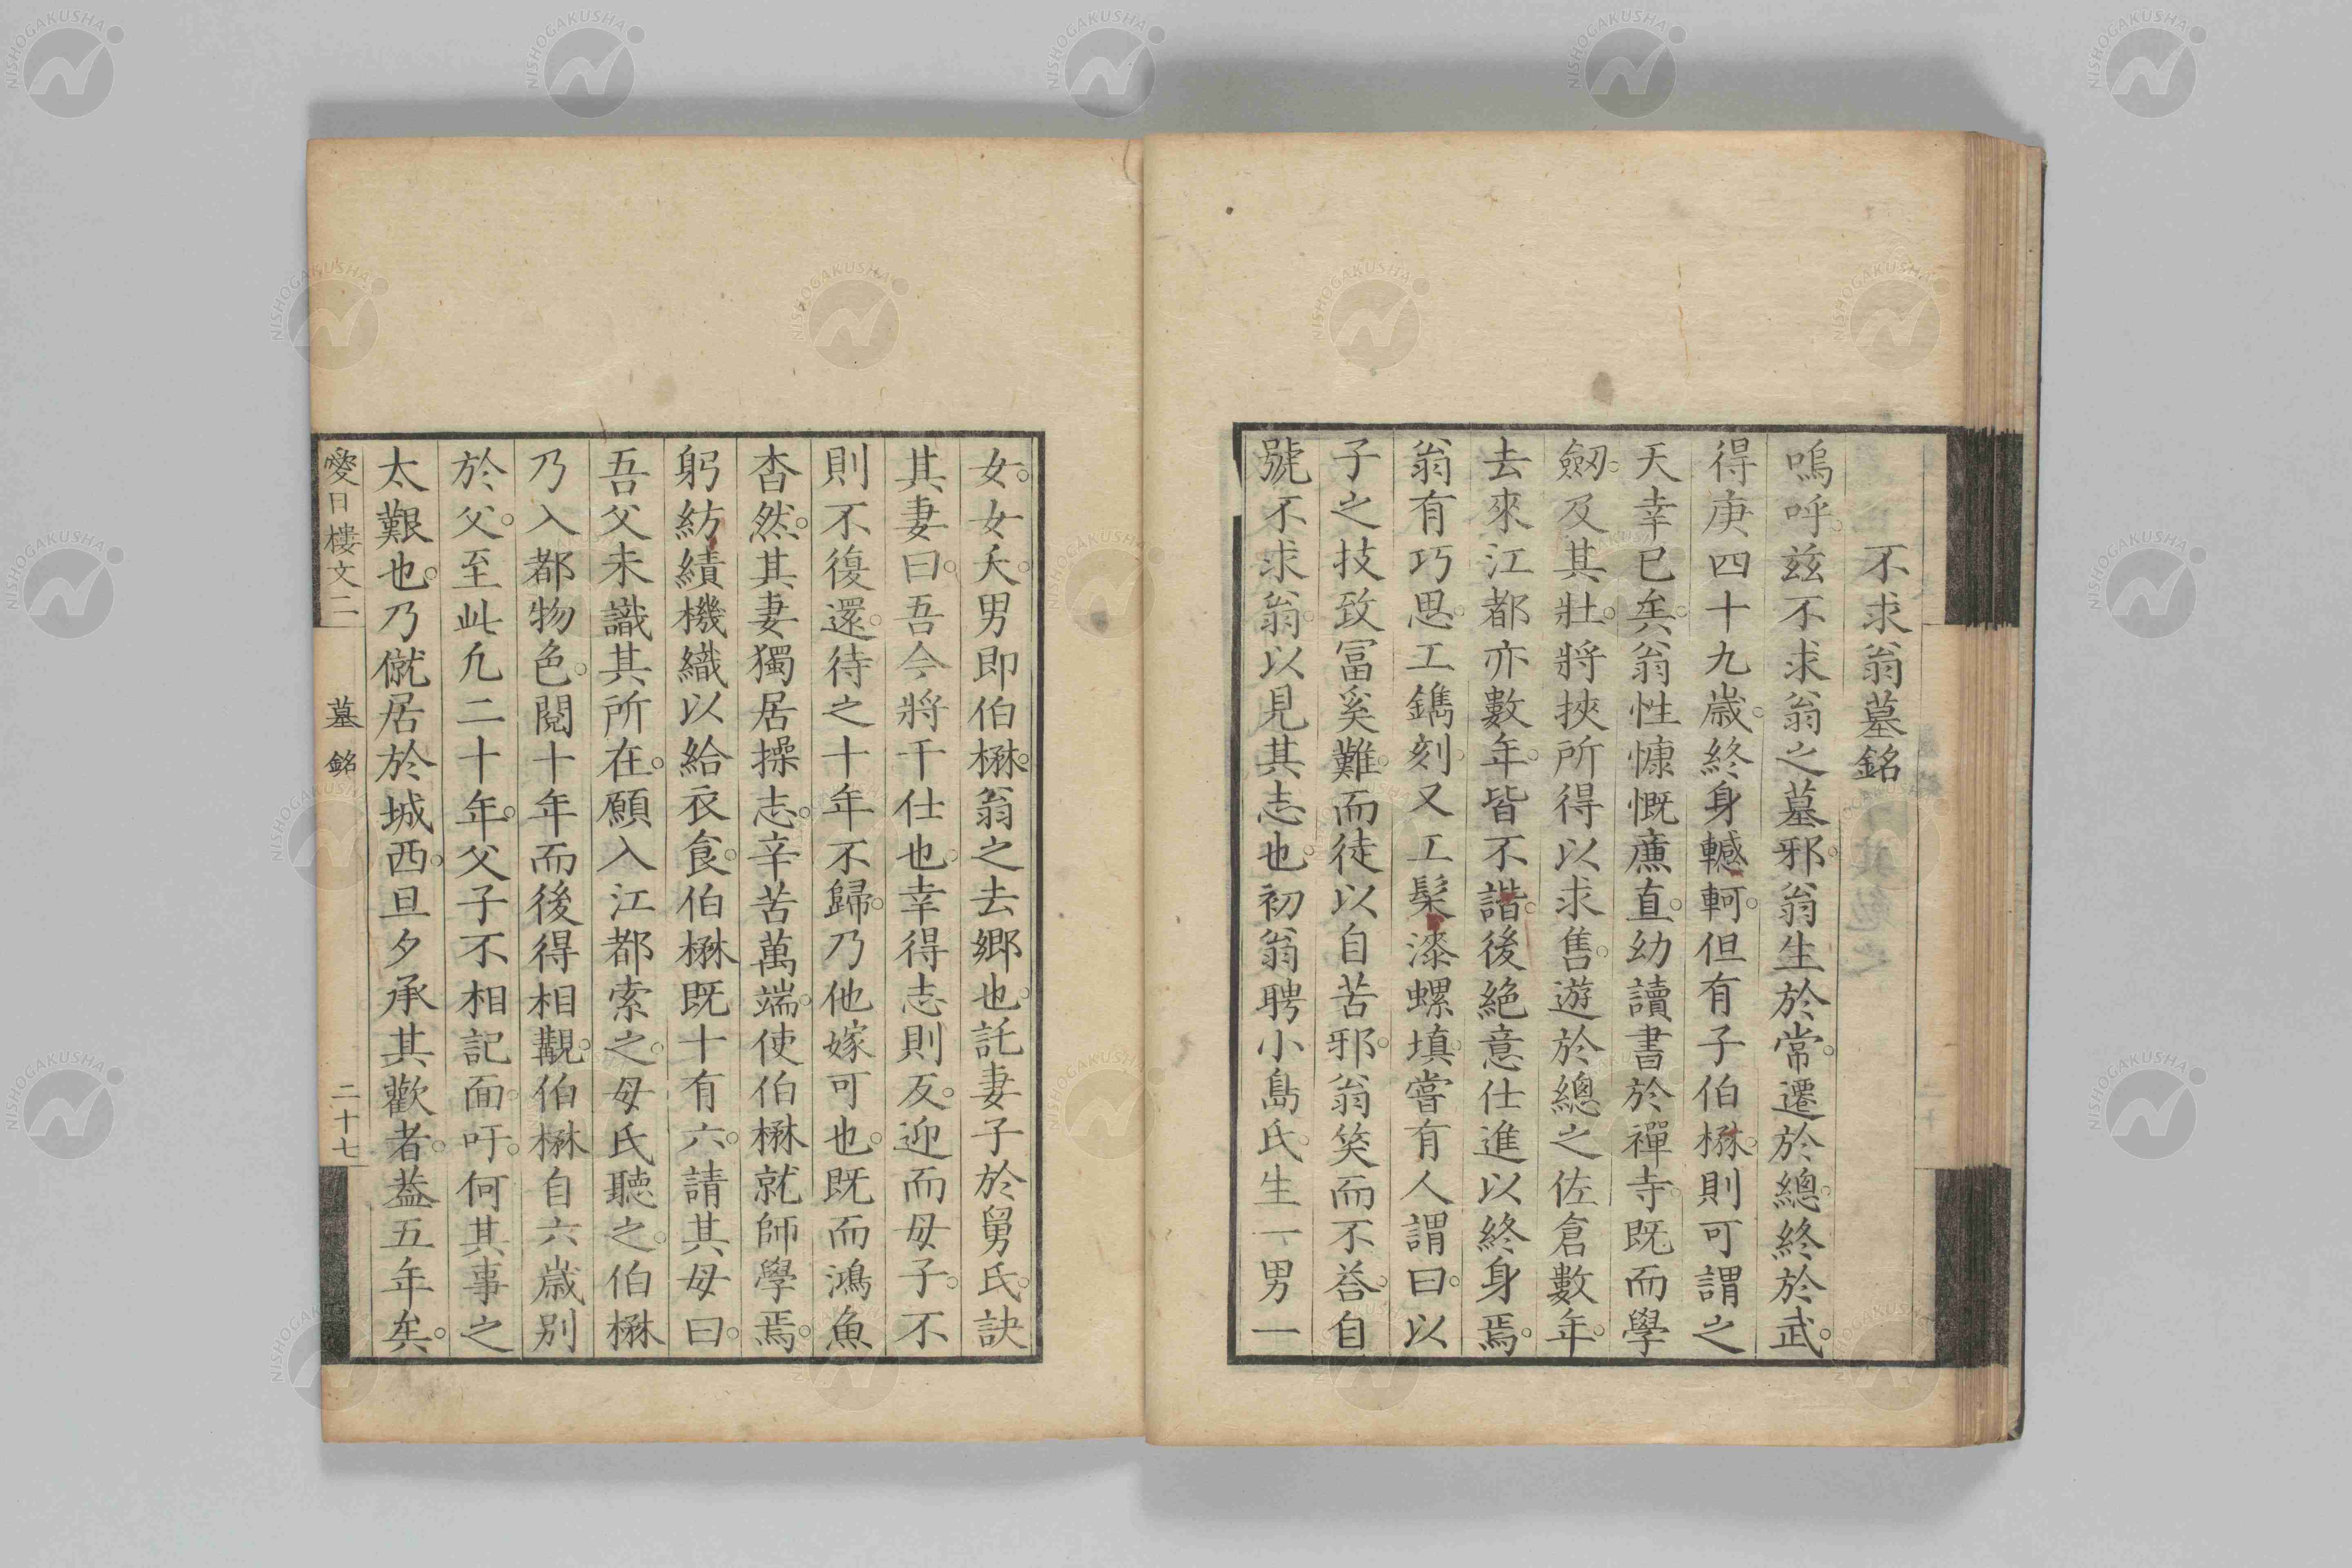 不求翁墓銘
嗚呼。兹不求翁之墓邪。翁生於常。遷於總。終於武。
得庚四十九歳。終身轗軻。但有子伯楙。則可謂之
天幸已矣。翁性慷慨廉直。幼讀書於禪寺。既而學
劒。及其壯。將挾所得以求售。遊於總之佐倉數年。
去來江都亦數年。皆不諧。後絶意仕進以終身焉。
翁有巧思。工鐫刻。又工髹漆螺填。嘗有人謂曰。以
子之技致冨奚難。而徒以自苦邪。翁笑而不荅。自
號不求翁。以見其志也。初翁聘小島氏。生一男一
女。女夭。男即伯楙。翁之去郷也。託妻子於舅氏。訣
其妻曰。吾今將干仕也。幸得志則反。迎而母子。不
則不復還。待之十年不歸。乃他嫁可也。既而鴻魚
杳然。其妻獨居操志。辛苦萬端。使伯楙就師學焉。
躬紡績機織以給衣食。伯楙既十有六。請其母曰。
吾父未識其所在。願入江都索之。母氏聽之。伯楙
乃入都物色。閲十年而後得相覯。伯楙自六歳別
於父。至此凢二十年。父子不相記面。吁。何其事之
太艱也。乃僦居於城西。旦夕承其歡者。葢五年矣。
愛日樓文二 墓銘 二十七
NISHOGAKUSHA